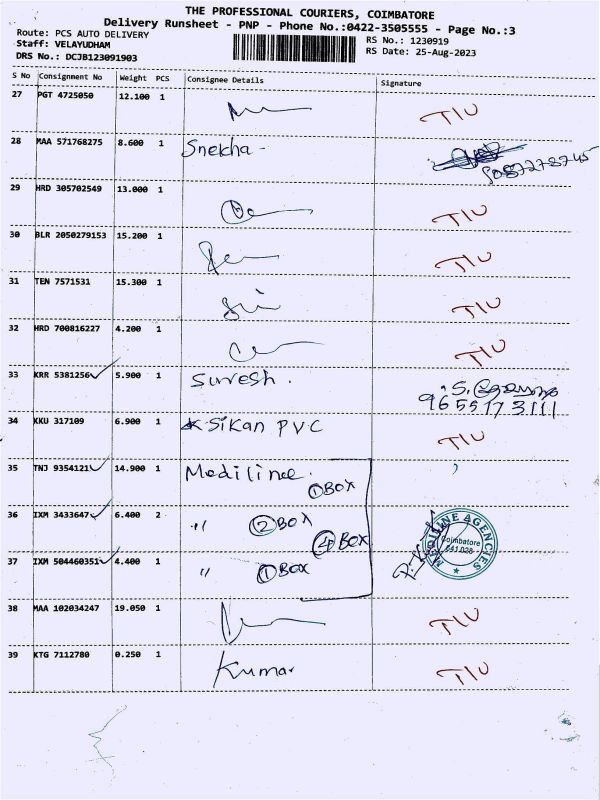 THE PROFESSIONAL COURIERS, COIMBATORE
Delivery Runsheet - PNP - Phone No.:0422-3505555 - Page No.:3
Route: PCS AUTO DELIVERY
RS No.: 1230919
Staff: VELAYUDHAM
RS Date: 25-Aug-2023
DRS No.: DCJB123091903
S No Consignment No Weight PCS Consignee Details Signature
27 PGT 4725050 12.100 1 TIU
28 MAA 571768275 8.600 1 Snekha -
29 HRD 305702549 13.000 1 TIU
30 BLR 2050279153 15.200 1 TIU
31 TEN 7571531 15.300 1 TIU
32 HRD 700816227 4.200 1 TIU
33 KRR 5381256 5.900 1 Suresh .
9655173111
34 KKU 317109 6.900 1 Sikan PVC TIU
35 TNJ 9354121 14.900 1 Mediline .
① BOX
36 IXM 3433647 6.400 2 " ② BOX
④ BOX
37 IXM 504460351 4.400 1 " ① BOX
MEDILINE AGENCIES
Coimbatore
641 028
38 MAA 102034247 19.050 1 TIU
39 KTG 7112780 0.250 1 Kumar TIU